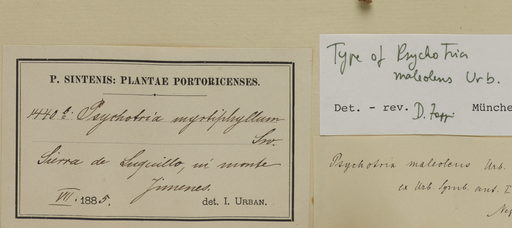 P. SINTENIS: PLANTAE PORTORICENSES.
1440b. Psychotria myrtiphyllum
Sw.
Sierra de Luquillo, in monte
Jimenes.
VII. 1885. det. I. URBAN.
Type of Psychotria
maleolens Urb.
Det. - rev. D. Zappi Münche
Psychotria maleolens Urb.
ex Urb. Symb. ant. I